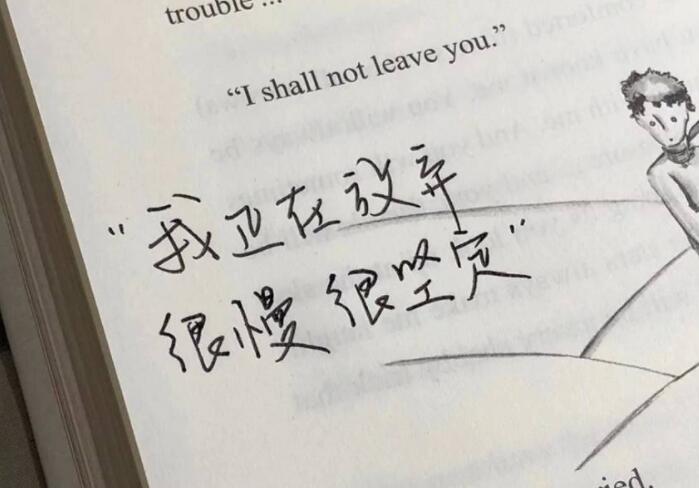 trouble ...
“I shall not leave you.”
“我正在放弃
很慢很坚定”